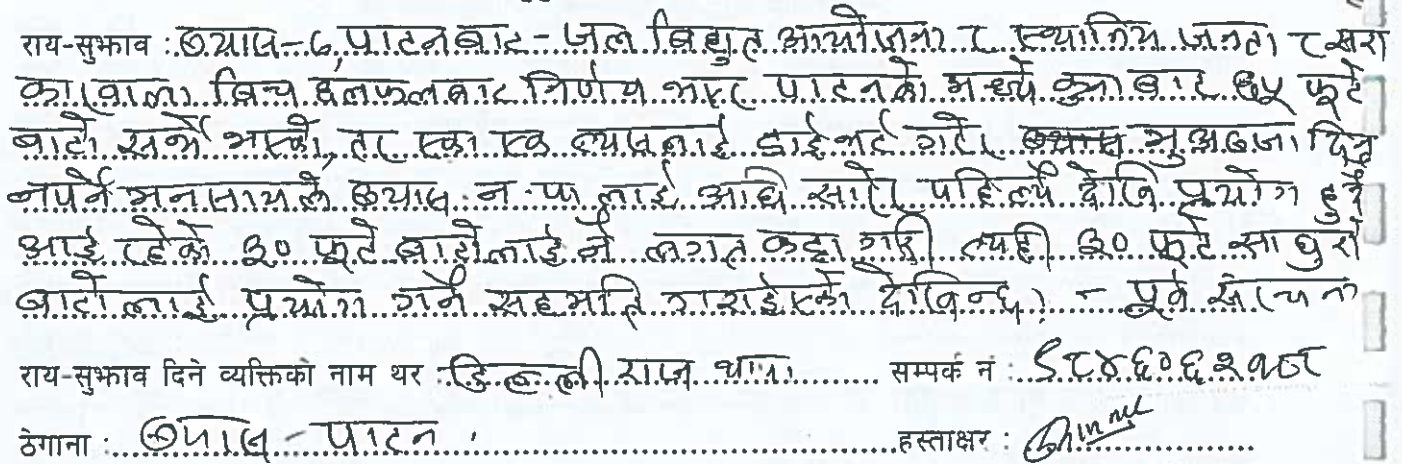 राय-सुझाव : ब्यास-६, पाटनबाट - जल बिद्युत आयोजना र स्थानिय जनता र सरो
कारवाला बिच छलफलबाट निर्णय भएर पाटनको मध्ये कुना बाट ६५ फुटे
बाटो सर्भे भएको, तर एका एक त्यसलाई डाईभर्ट गरेर मुअब्जा दिनु
नपर्ने मनसायले ब्यास न.पा लाई अघि सारेर पहिल्यै देखि प्रयोग हुदै
आई रहेको २० फुटे बाटोलाई नै लगत कट्टा गरी त्यही २० फुटे साघुरो
बाटोलाई प्रयोग गर्न सहमति गराईएको देखिन्छ । - पूर्व
राय-सुझाव दिने व्यक्तिको नाम थर : डिल्ली राज थापा सम्पर्क नं : ९८४६०६२१७८
ठेगाना : ब्यास - पाटन । हस्ताक्षर :